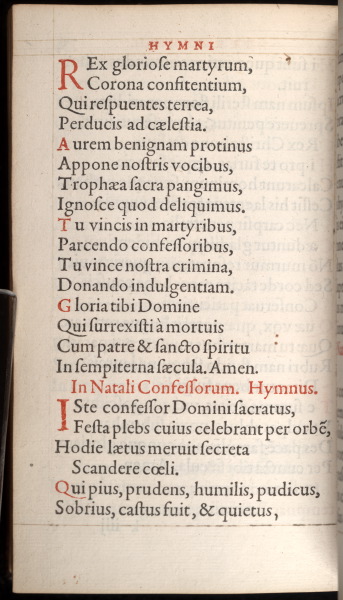 HYMNI
REx glorioſe martyrum,
Corona confitentium,
Qui reſpuentes terrea,
Perducis ad cæleſtia.
Aurem benignam protinus
Appone noſtris vocibus,
Trophæa ſacra pangimus,
Ignoſce quod deliquimus.
Tu vincis in martyribus,
Parcendo confeſſoribus,
Tu vince noſtra crimina,
Donando indulgentiam.
Gloria tibi Domine
Qui ſurrexiſti à mortuis
Cum patre & ſancto ſpiritu
In ſempiterna ſæcula. Amen.
In Natali Confeſſorum. Hymnus.
ISte confeſſor Domini ſacratus,
Feſta plebs cuius celebrant per orbē,
Hodie lætus meruit ſecreta
Scandere cœli.
Qui pius, prudens, humilis, pudicus,
Sobrius, caſtus fuit, & quietus,